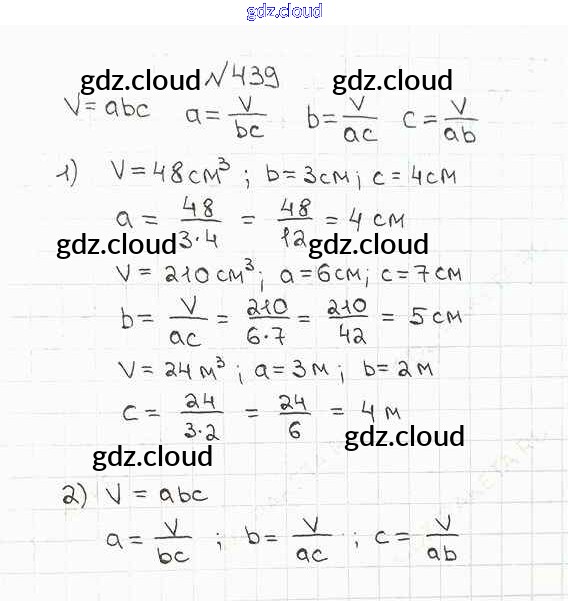 gdz.cloud
gdz.cloud №439 gdz.cloud
V=abc a=V/bc b=V/ac c=V/ab
1) V=48см³; b=3см; c=4см
a = 48/3·4 = 48/12 = 4 см
gdz.cloud gdz.cloud
V=210см³; a=6см; c=7см
b = V/ac = 210/6·7 = 210/42 = 5см
V=24м³; a=3м; b=2м
c = 24/3·2 = 24/6 = 4м
gdz.cloud
gdz.cloud
2) V=abc
a=V/bc; b=V/ac; c=V/ab